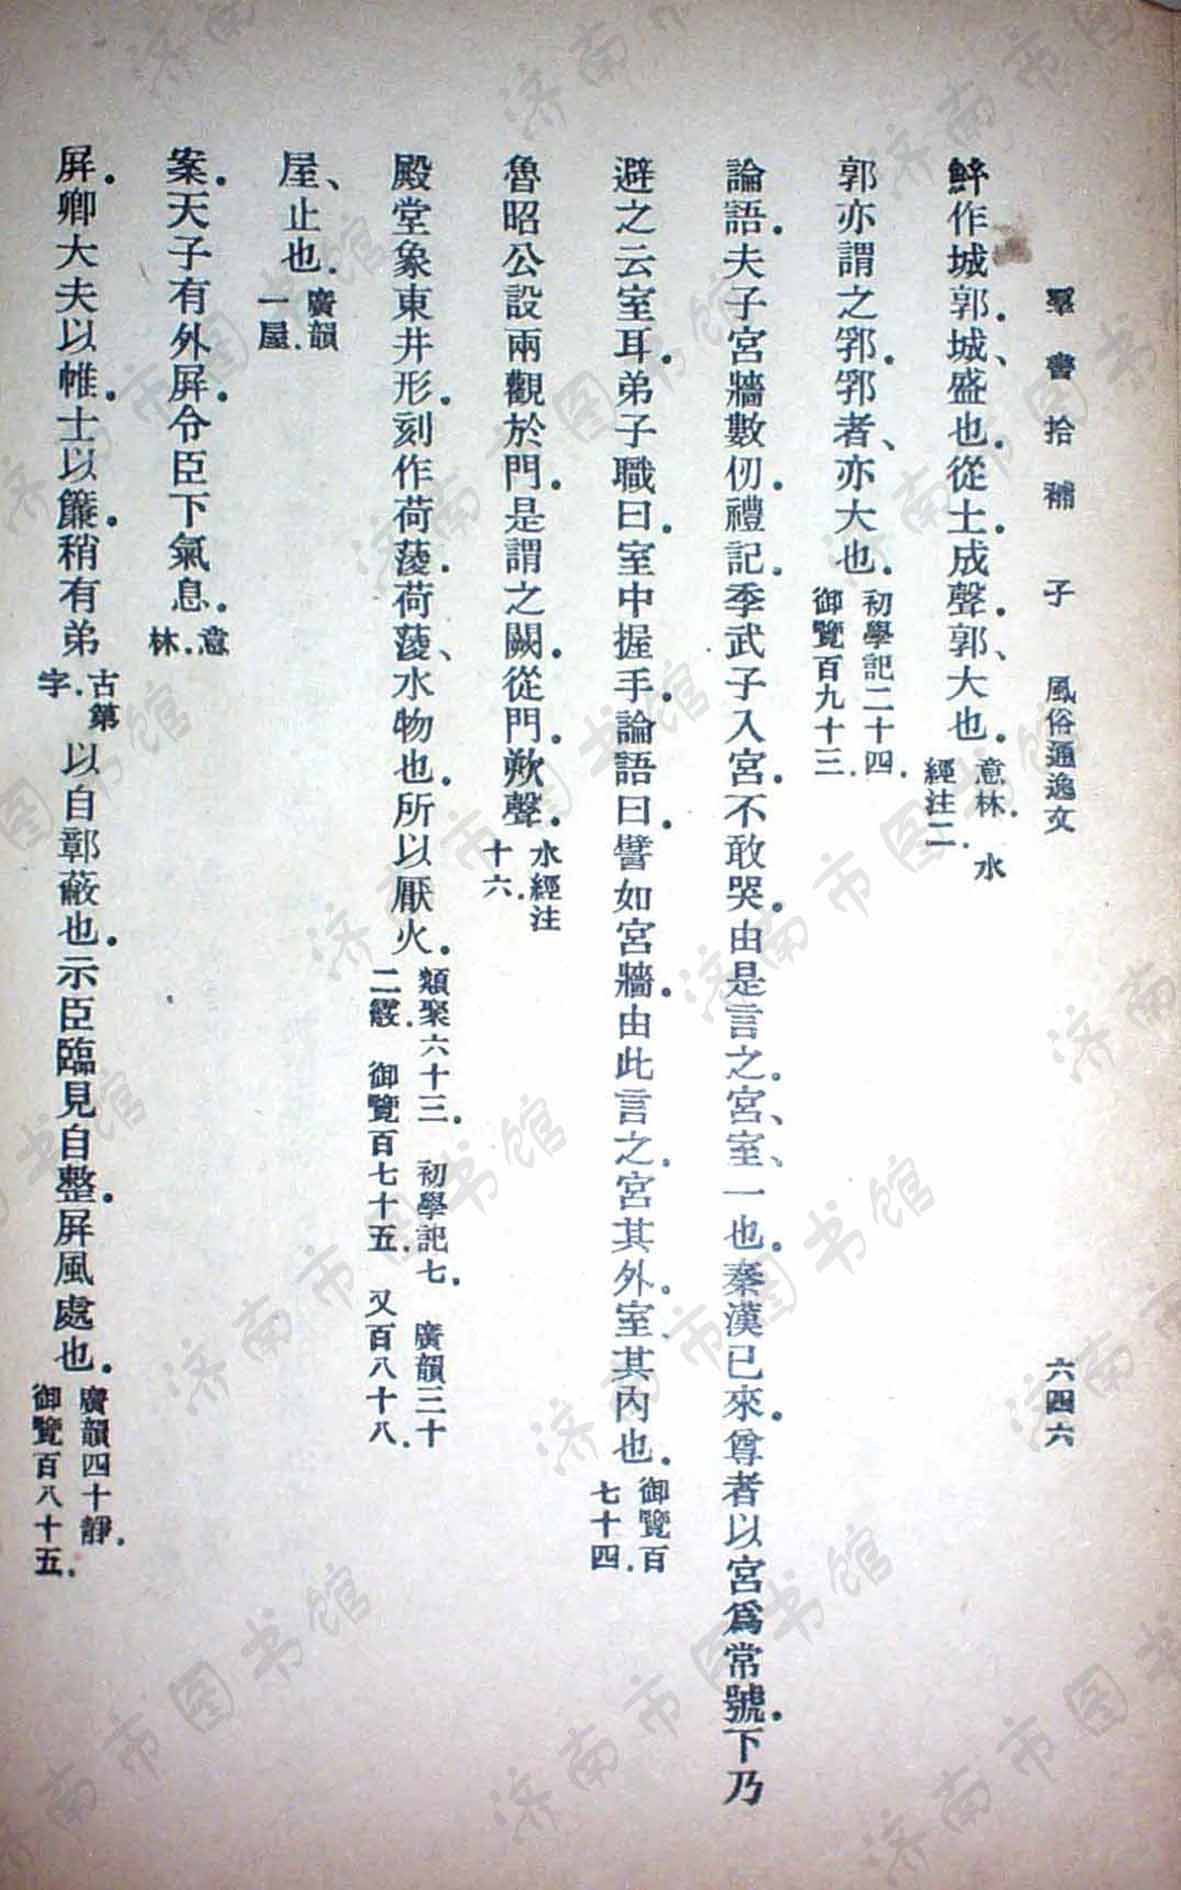 羣書拾補 子 風俗通逸文 六四六
鮌作城郭.城、盛也.從土.成聲.郭、大也.意林.水經注二.
郭亦謂之郛.郛者、亦大也.初學記二十四.御覽百九十三.
論語.夫子宮牆數仞.禮記.季武子入宮.不敢哭.由是言之.宮、室、一也.秦漢已來.尊者以宮爲常號.下乃
避之云室耳.弟子職曰.室中握手.論語曰.譬如宮牆.由此言之.宮其外.室其內也.御覽百七十四.
魯昭公設兩觀於門.是謂之闕.從門.欮聲.水經注十六.
殿堂象東井形.刻作荷蔆.荷蔆、水物也.所以厭火.類聚六十三.初學記七.廣韻三十二霰.御覽百七十五.又百八十八.
屋、止也.廣韻一屋.
案.天子有外屏.令臣下氣息.意林.
屏.卿大夫以帷.士以簾.稍有弟古第字.以自鄣蔽也.示臣臨見自整.屏風處也.廣韻四十靜.御覽百八十五.
济南市图书馆